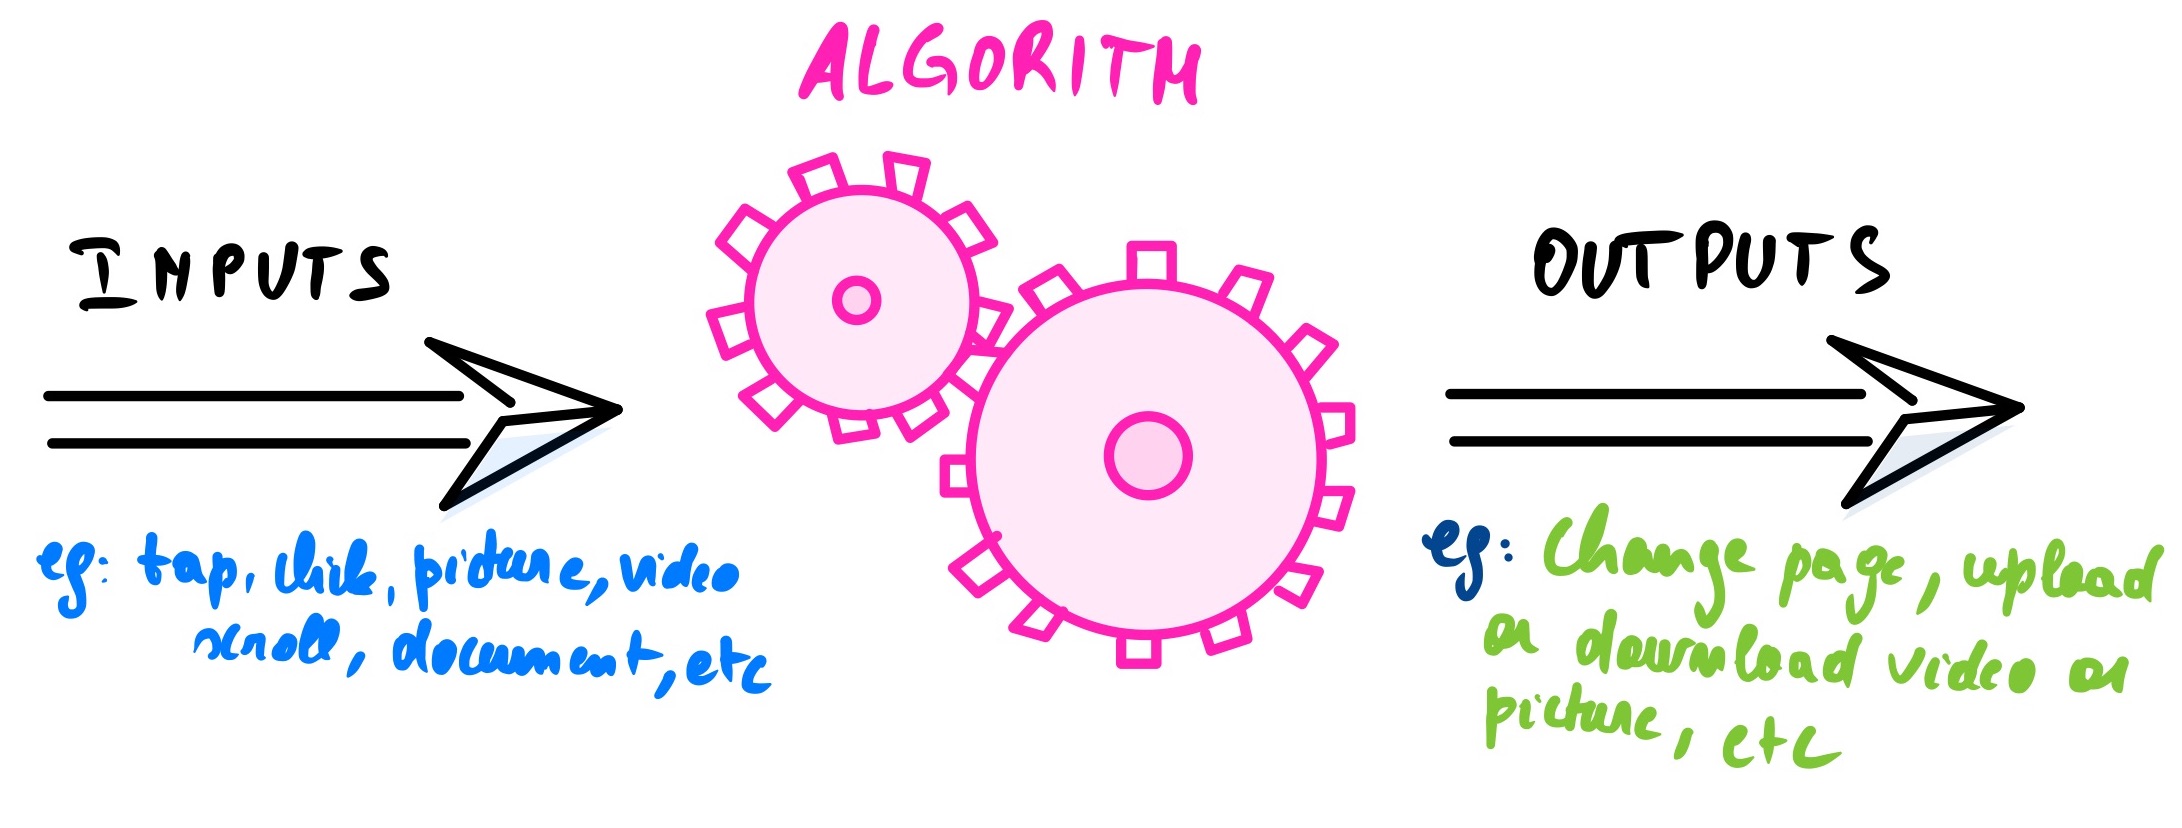 ALGORITM
INPUTS
eg: tap, click, picture, video
scroll, document, etc
OUTPUTS
eg: Change page, upload
or download video or
picture, etc